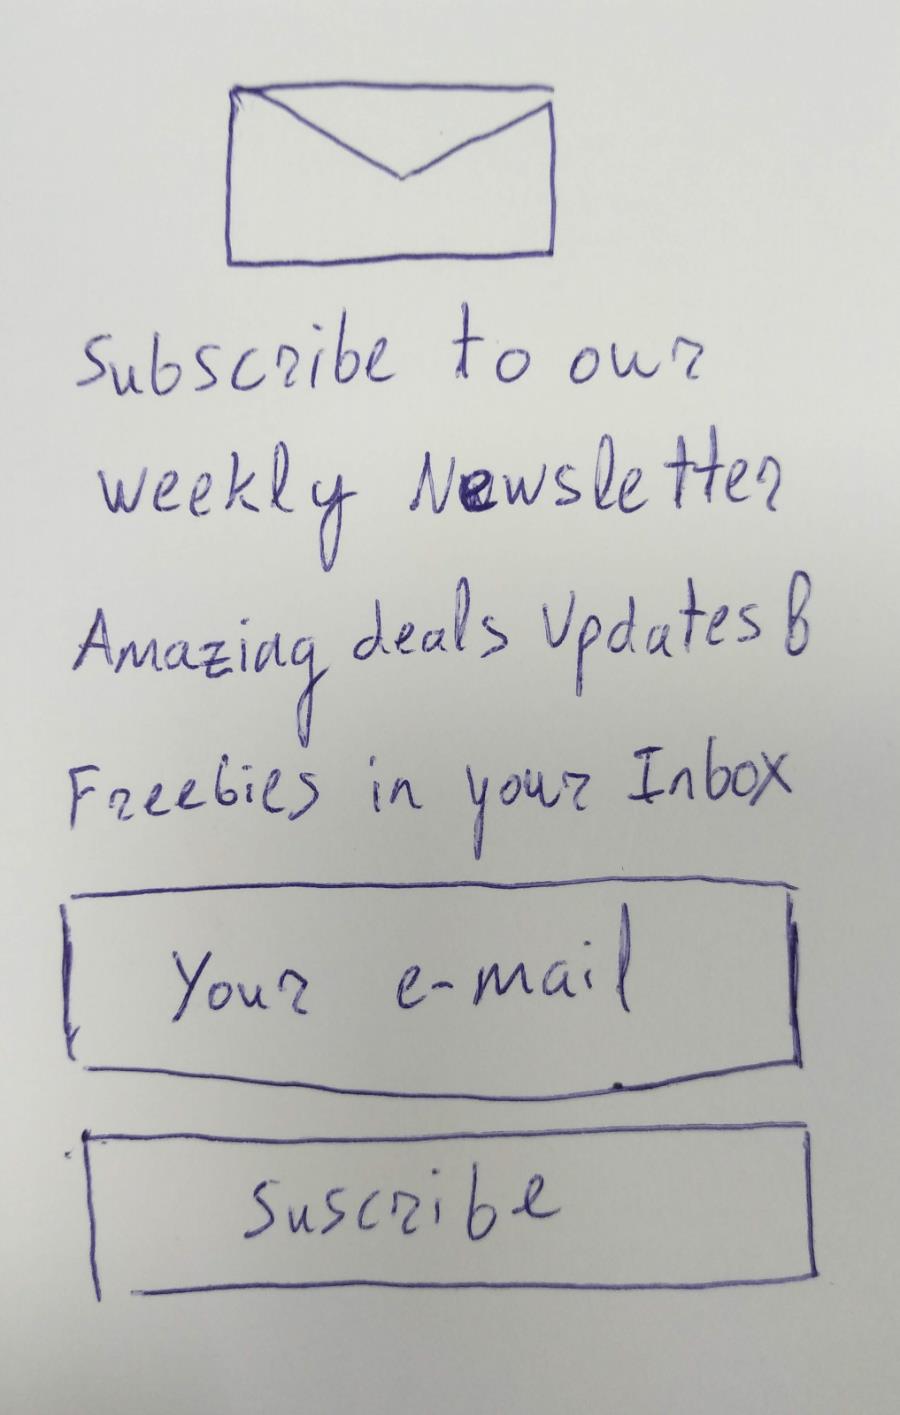 Subscribe to our
weekly Newsletter
Amazing deals Updates &
Freebies in your Inbox
Your e-mail
Suscribe